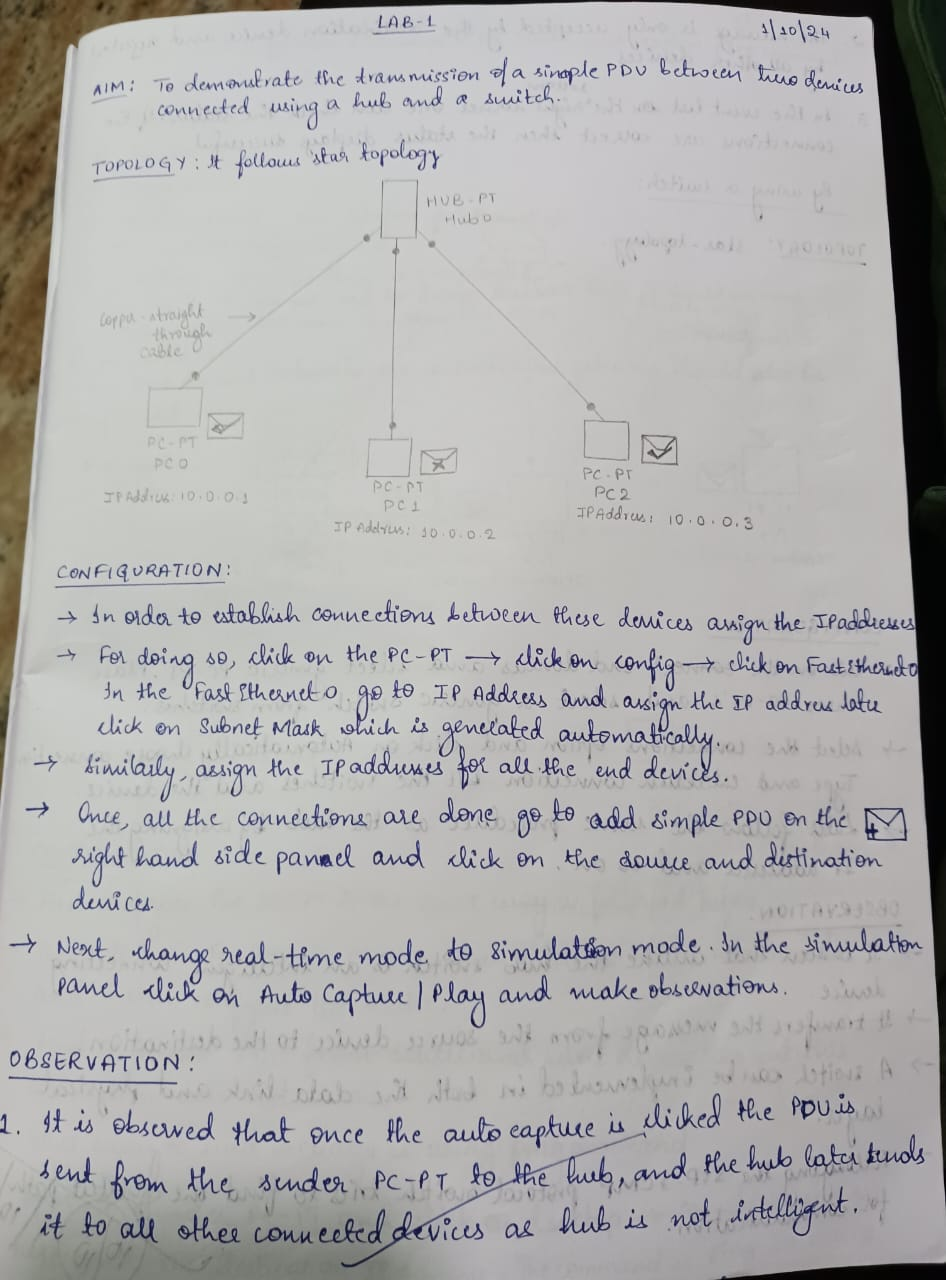 LAB-1
1/10/24
AIM: To demonstrate the transmission of a simple PDU between two devices
connected using a hub and a switch.
TOPOLOGY: It follows star topology
HUB-PT
Hub0
Copper straight
through
cable
PC-PT
PC0
IP Address: 10.0.0.1
PC-PT
PC1
IP Address: 10.0.0.2
PC-PT
PC2
IP Address: 10.0.0.3
CONFIGURATION:
→ In order to establish connections between these devices assign the IP addresses
→ For doing so, click on the PC-PT → click on config → click on FastEthernet0
In the FastEthernet0 go to IP Address and assign the IP address later
click on Subnet Mask which is generated automatically.
→ Similarly, assign the IP addresses for all the end devices.
→ Once, all the connections are done go to add simple PDU on the
right hand side pannel and click on the source and distination
devices.
→ Next, change real-time mode to simulation mode. In the simulation
panel click on Auto Capture / Play and make observations.
OBSERVATION:
1. It is observed that once the auto capture is clicked the PDU is
sent from the sender PC-PT to the hub, and the hub later sends
it to all other connected devices as hub is not intelligent.